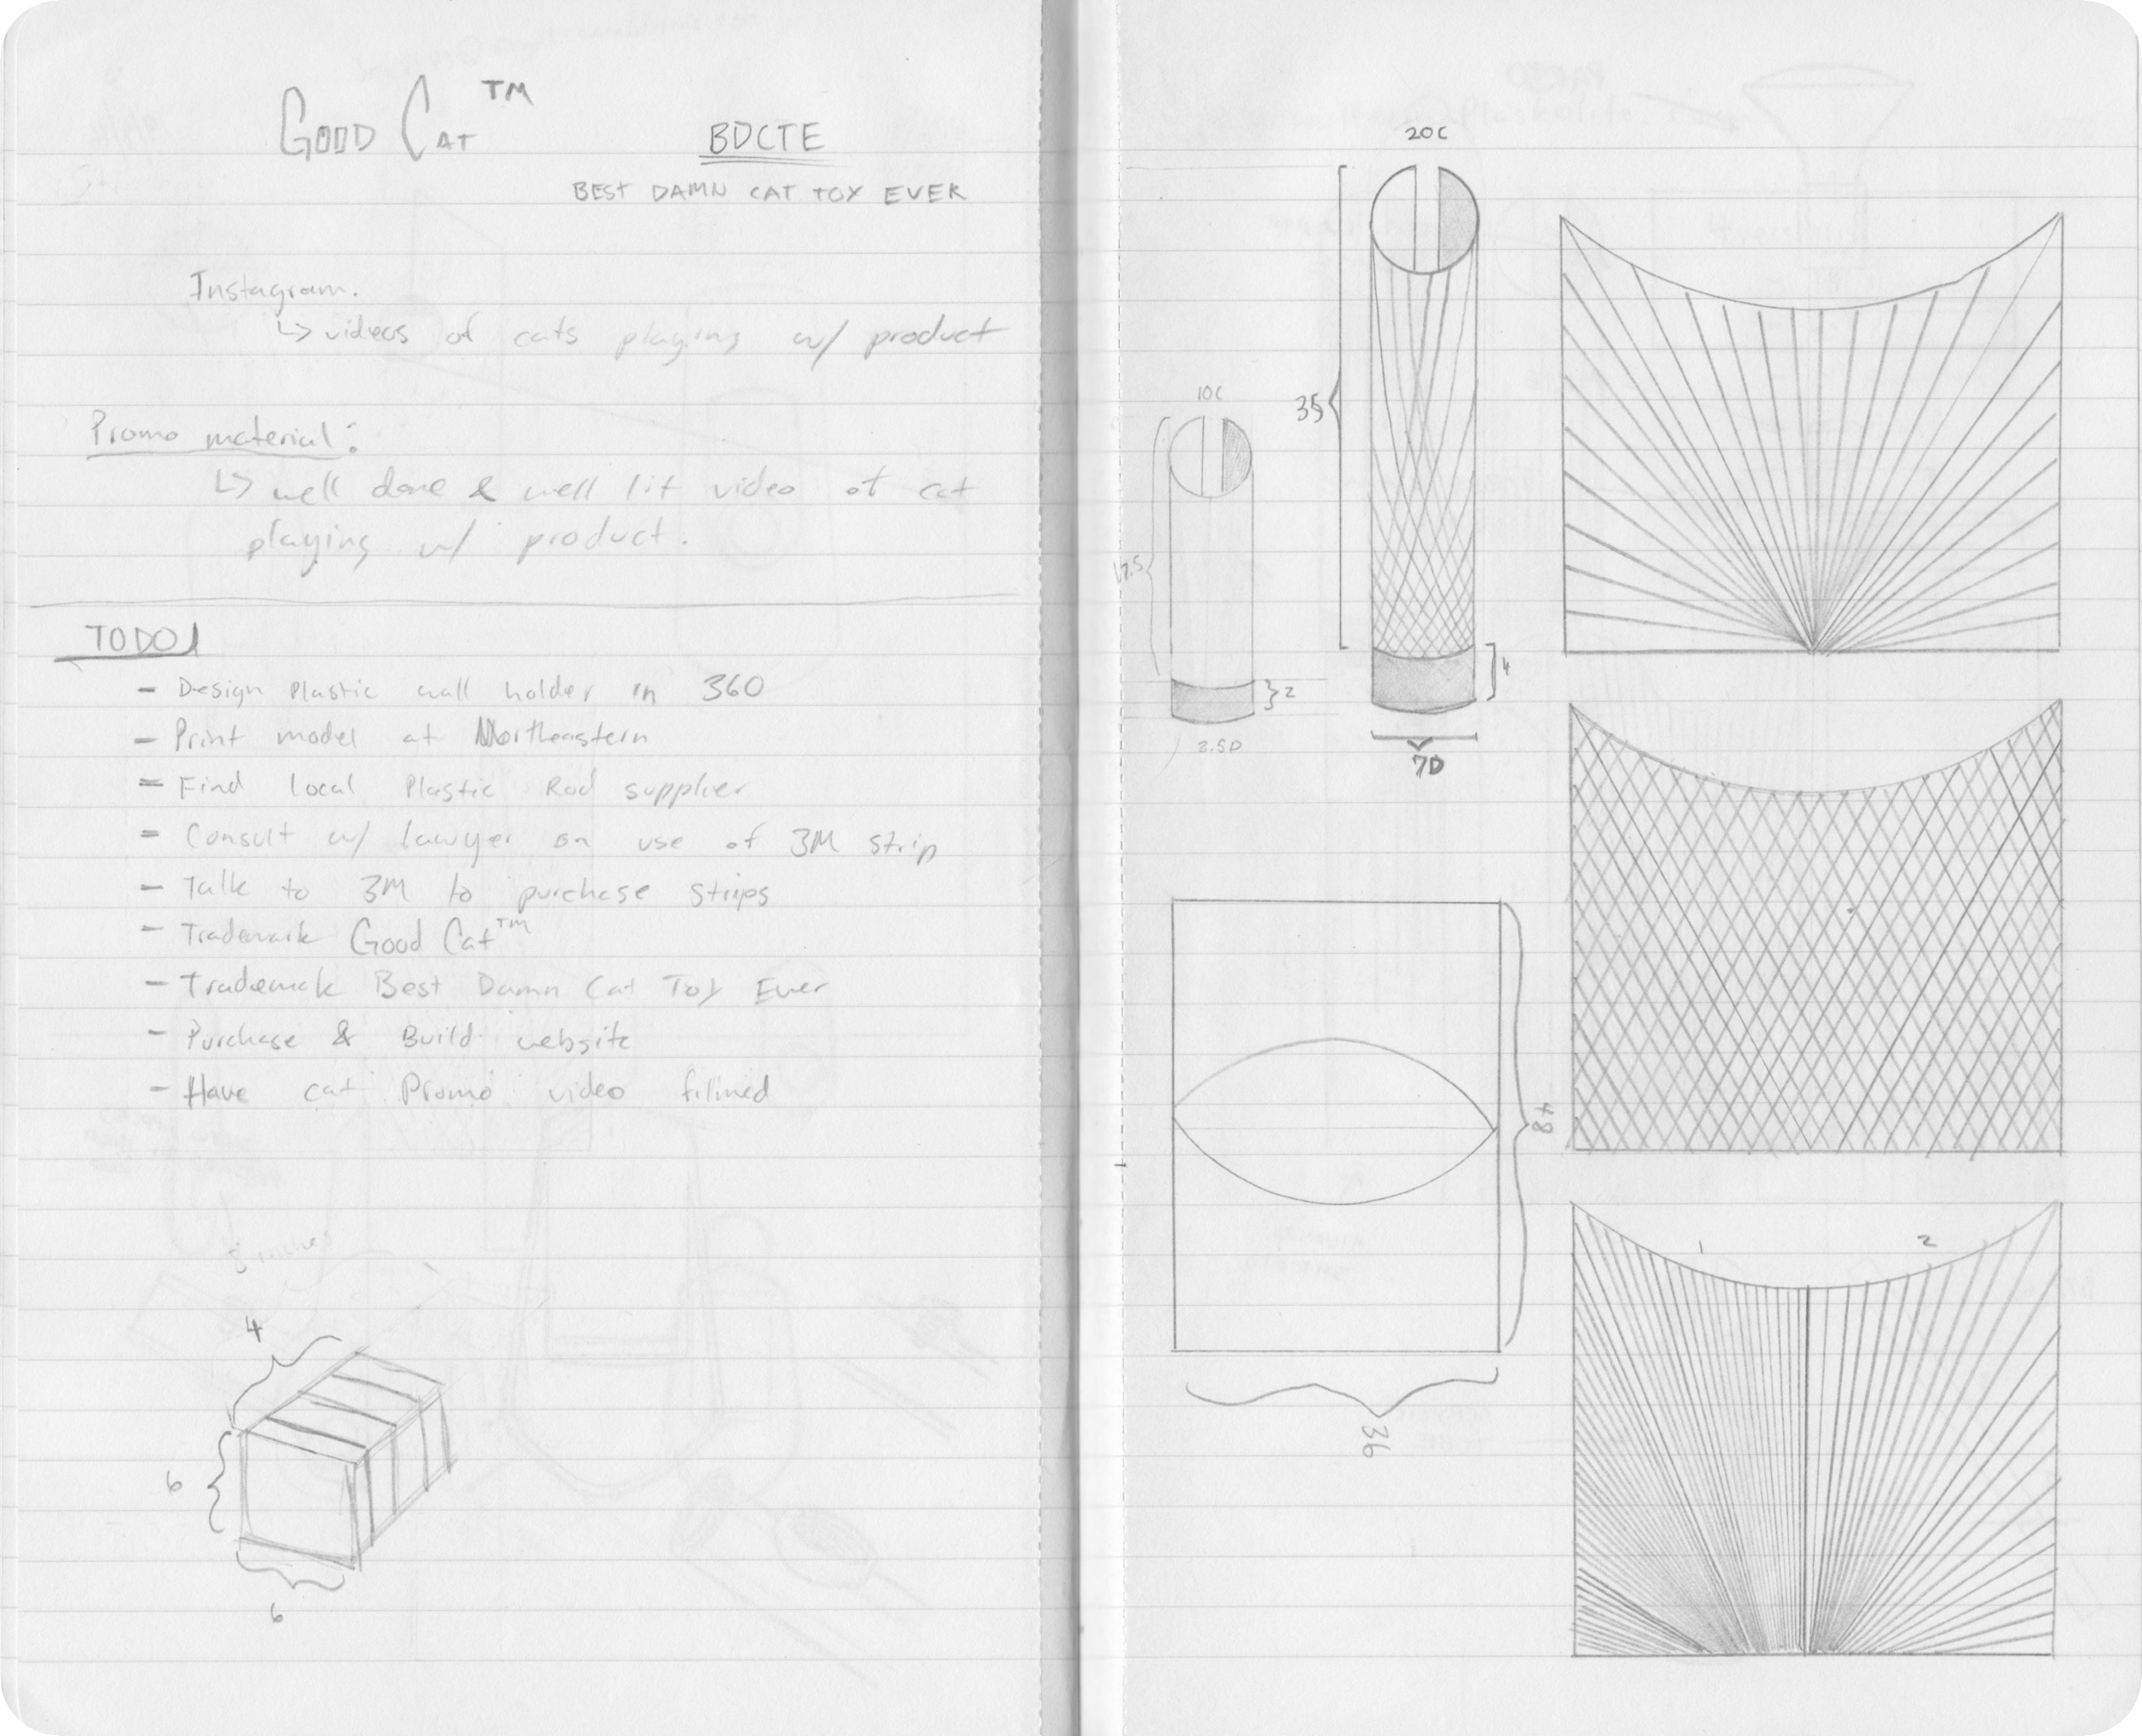 GOOD CAT™
BDCTE
BEST DAMN CAT TOY EVER
Instagram.
↳ videos of cats playing w/ product
Promo material:
↳ well done & well lit video of cat
playing w/ product.
TODO
- Design Plastic wall holder in 360
- Print model at Northeastern
- Find local Plastic Rod supplier
- Consult w/ lawyer on use of 3M strip
- Talk to 3M to purchase strips
- Trademark Good Cat™
- Trademark Best Damn Cat Toy Ever
- Purchase & Build website
- Have cat Promo video filmed
4
6
6
20C
35
4
7D
10C
17.5
2
3.5D
48
36
1
2